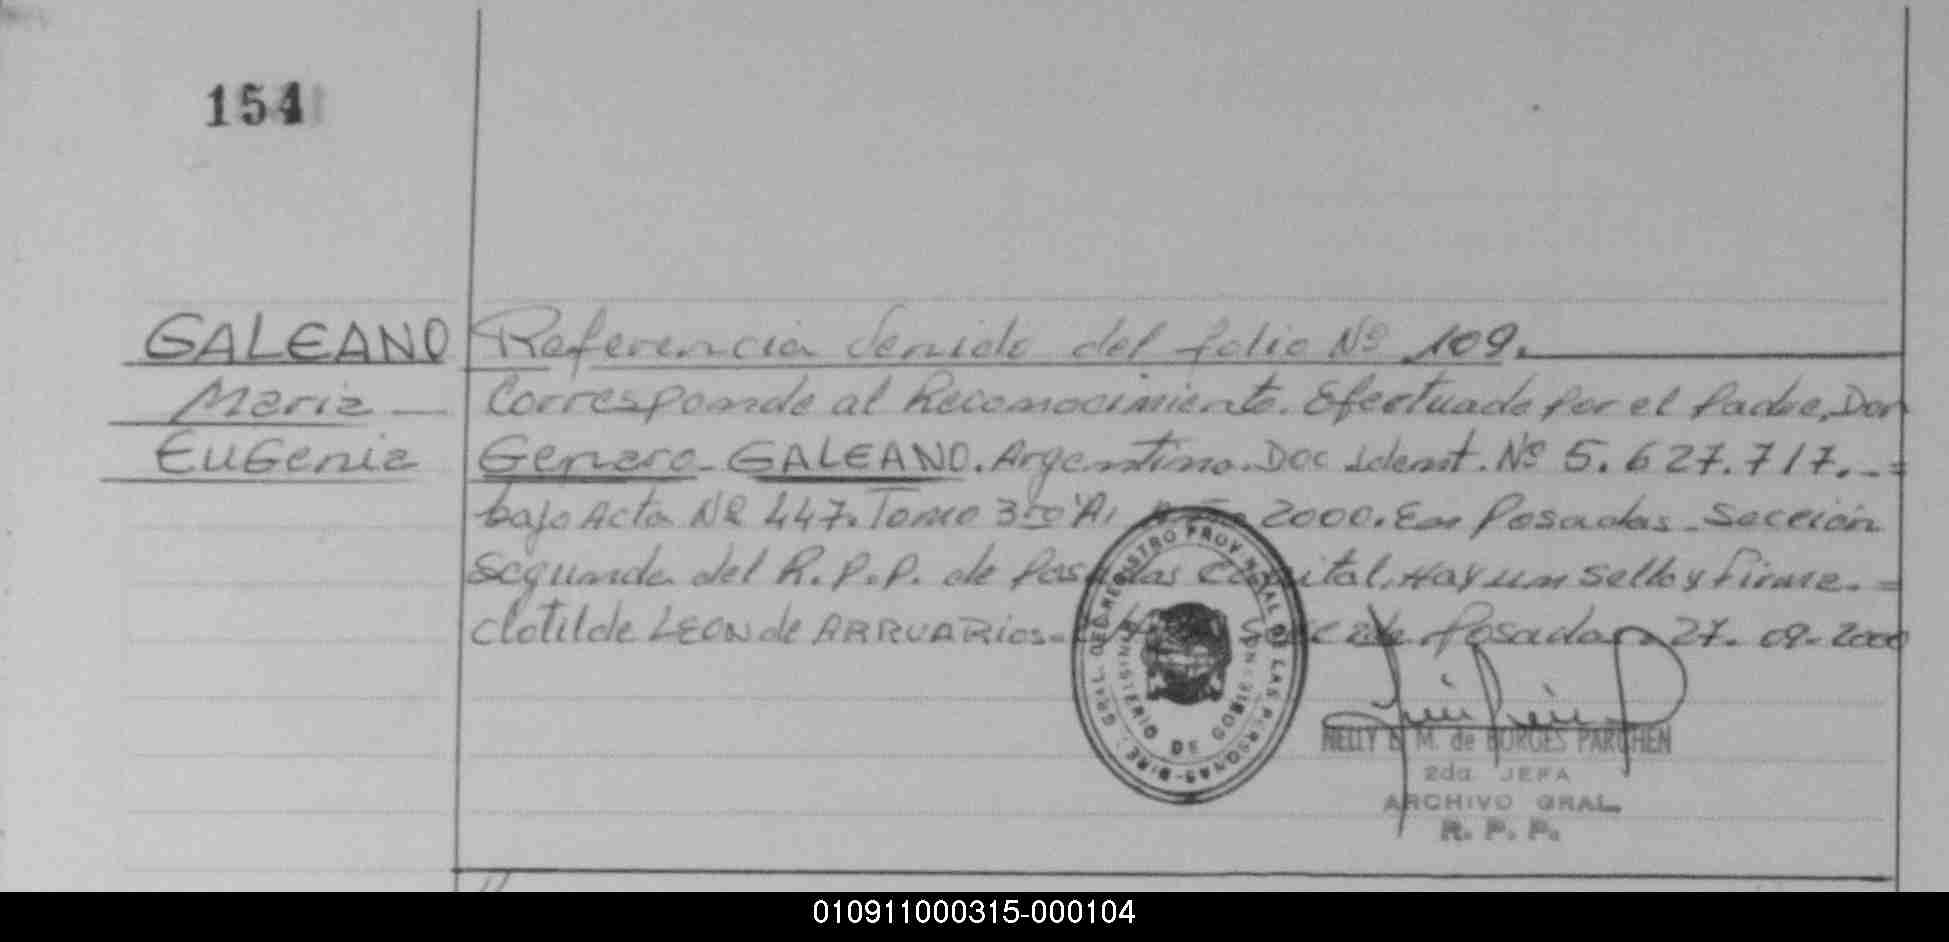 154
GALEANO Referencia Venido del folio Nº 109.
Maria Corresponde al Reconocimiento. Efectuado por el Padre, Don
EuGenia Genaro GALEANO. Argentino. Doc Ident. Nº 5.627.717.-=
bajo Acta Nº 447. Tomo 3ro 'A, 2000. En Posadas Sección
Segunda del R.P.P. de Posadas Capital. Hay un Sello y firma.=
Clotilde LEON de ARRUA Rios- Posadas 27-09-2000
DIRE. GRAL. DEL REGISTRO PROVINCIAL DE LAS PERSONAS
MINISTERIO DE GOBIERNO
NELLY E. M. de BORGES PARCHEN
2da. JEFA
ARCHIVO GRAL.
R. P. P.
010911000315-000104